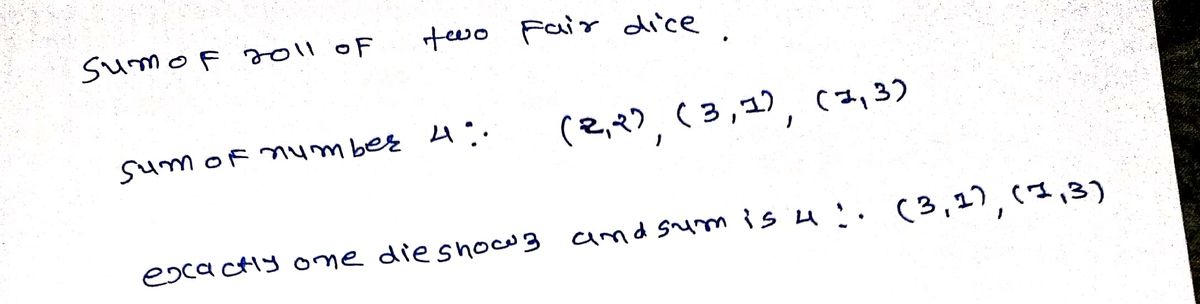 sum of roll of two Fair dice.
sum of number 4: (2,2), (3,1), (1,3)
exactly one die shows 3 and sum is 4: (3,1), (1,3)